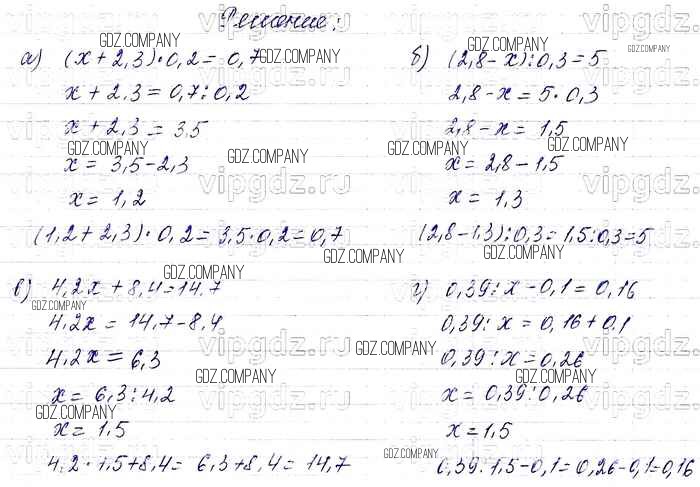 Решение:
а) (x + 2,3) · 0,2 = 0,7
x + 2,3 = 0,7 : 0,2
x + 2,3 = 3,5
x = 3,5 - 2,3
x = 1,2
(1,2 + 2,3) · 0,2 = 3,5 · 0,2 = 0,7
б) (2,8 - x) : 0,3 = 5
2,8 - x = 5 · 0,3
2,8 - x = 1,5
x = 2,8 - 1,5
x = 1,3
(2,8 - 1,3) : 0,3 = 1,5 : 0,3 = 5
в) 4,2x + 8,4 = 14,7
4,2x = 14,7 - 8,4
4,2x = 6,3
x = 6,3 : 4,2
x = 1,5
4,2 · 1,5 + 8,4 = 6,3 + 8,4 = 14,7
г) 0,39 : x - 0,1 = 0,16
0,39 : x = 0,16 + 0,1
0,39 : x = 0,26
x = 0,39 : 0,26
x = 1,5
0,39 : 1,5 - 0,1 = 0,26 - 0,1 = 0,16
GDZ.COMPANY
vipgdz.ru